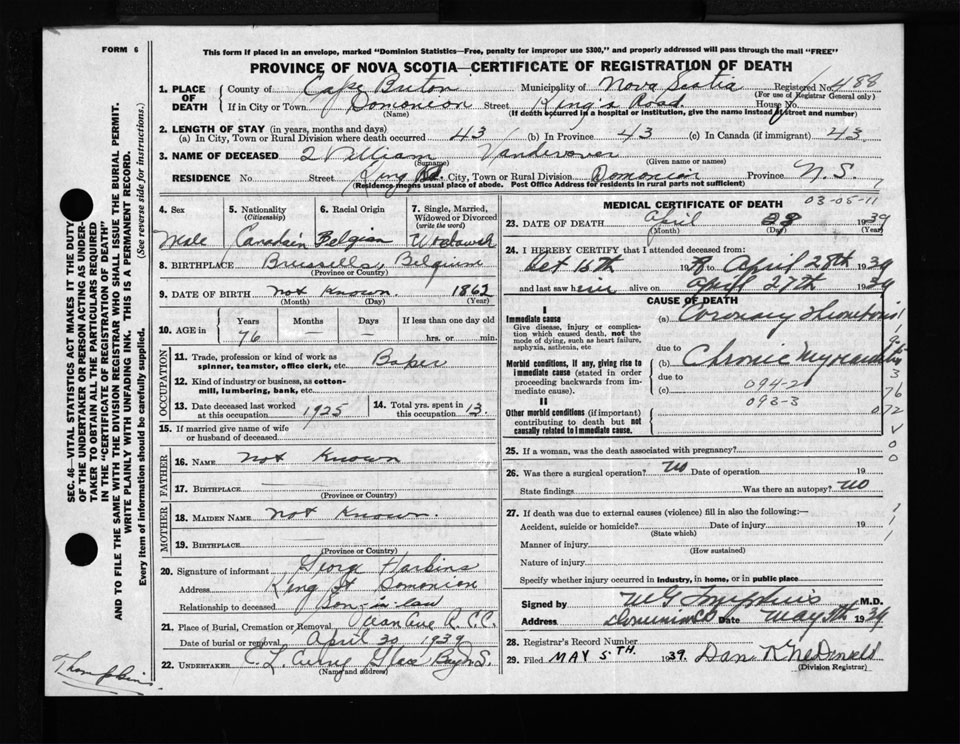 FORM 6
This form if placed in an envelope, marked "Dominion Statistics—Free, penalty for improper use $300," and properly addressed will pass through the mail "FREE"
PROVINCE OF NOVA SCOTIA—CERTIFICATE OF REGISTRATION OF DEATH
1. PLACE OF DEATH
County of Cape Briton Municipality of Nova Scotia Registered No. 488
(For use of Registrar General only)
If in City or Town Domonion Street King's Road House No.
(Name) (If death occurred in a hospital or institution, give the name instead of street and number)
2. LENGTH OF STAY (in years, months and days)
(a) In City, Town or Rural Division where death occurred 43 (b) In Province 43 (c) In Canada (if immigrant) 43
3. NAME OF DECEASED William Vanderover
(Surname) (Given name or names)
RESIDENCE No Street King Rd. City, Town or Rural Division Domonion Province N.S.
(Residence means usual place of abode. Post Office Address for residents in rural parts not sufficient)
4. Sex Male
5. Nationality (Citizenship) Canadain
6. Racial Origin Belgian
7. Single, Married, Widowed or Divorced (write the word)
8. BIRTHPLACE Brussells, Belgium
(Province or Country)
9. DATE OF BIRTH Not Known. 1862
(Month) (Day) (Year)
10. AGE in Years Months Days If less than one day old
76 — hrs. or min.
OCCUPATION
11. Trade, profession or kind of work as spinner, teamster, office clerk, etc. Baker
12. Kind of industry or business, as cotton-mill, lumbering, bank, etc.
13. Date deceased last worked at this occupation 1925
14. Total yrs. spent in this occupation 13.
15. If married give name of wife or husband of deceased
FATHER
16. NAME Not Known
17. BIRTHPLACE
(Province or Country)
MOTHER
18. MAIDEN NAME Not Known.
19. BIRTHPLACE
(Province or Country)
20. Signature of informant George Harbins
Address King St Domonion
Relationship to deceased Son-in-law
21. Place of Burial, Cremation or Removal
Date of burial or removal April 30, 1939
22. UNDERTAKER C. L. Curry Glace Bay N.S.
(Name and address)
03-05-11
MEDICAL CERTIFICATE OF DEATH
23. DATE OF DEATH April 28 1939
(Month) (Day) (Year)
24. I HEREBY CERTIFY that I attended deceased from:
Oct 15th 19 to April 28th 1939
and last saw him alive on April 27th 1939
CAUSE OF DEATH
I
Immediate cause
Give disease, injury or complication which caused death, not the mode of dying, such as heart failure, asphyxia, asthenia, etc.
(a) Coronary Thrombosis
due to
Morbid conditions, if any, giving rise to immediate cause (stated in order proceeding backwards from immediate cause).
(b) Chronic Myocarditis
due to 094-2
(c) 093-3
II
Other morbid conditions (if important) contributing to death but not causally related to immediate cause.
25. If a woman, was the death associated with pregnancy?
26. Was there a surgical operation? No Date of operation 19
State findings Was there an autopsy? No
27. If death was due to external causes (violence) fill in also the following:—
Accident, suicide or homicide? Date of injury 19
(State which)
Manner of injury
(How sustained)
Nature of injury
Specify whether injury occurred in industry, in home, or in public place
Signed by M.D.
Address Dominion Date May 1939
28. Registrar's Record Number
29. Filed MAY 5TH. 1939. Dan
(Division Registrar)
SEC. 46—VITAL STATISTICS ACT MAKES IT THE DUTY OF THE UNDERTAKER OR PERSON ACTING AS UNDERTAKER TO OBTAIN ALL THE PARTICULARS REQUIRED IN THE "CERTIFICATE OF REGISTRATION OF DEATH" AND TO FILE THE SAME WITH THE DIVISION REGISTRAR WHO SHALL ISSUE THE BURIAL PERMIT.
WRITE PLAINLY WITH UNFADING INK. THIS IS A PERMANENT RECORD.
Every item of information should be carefully supplied. (See reverse side for instructions.)